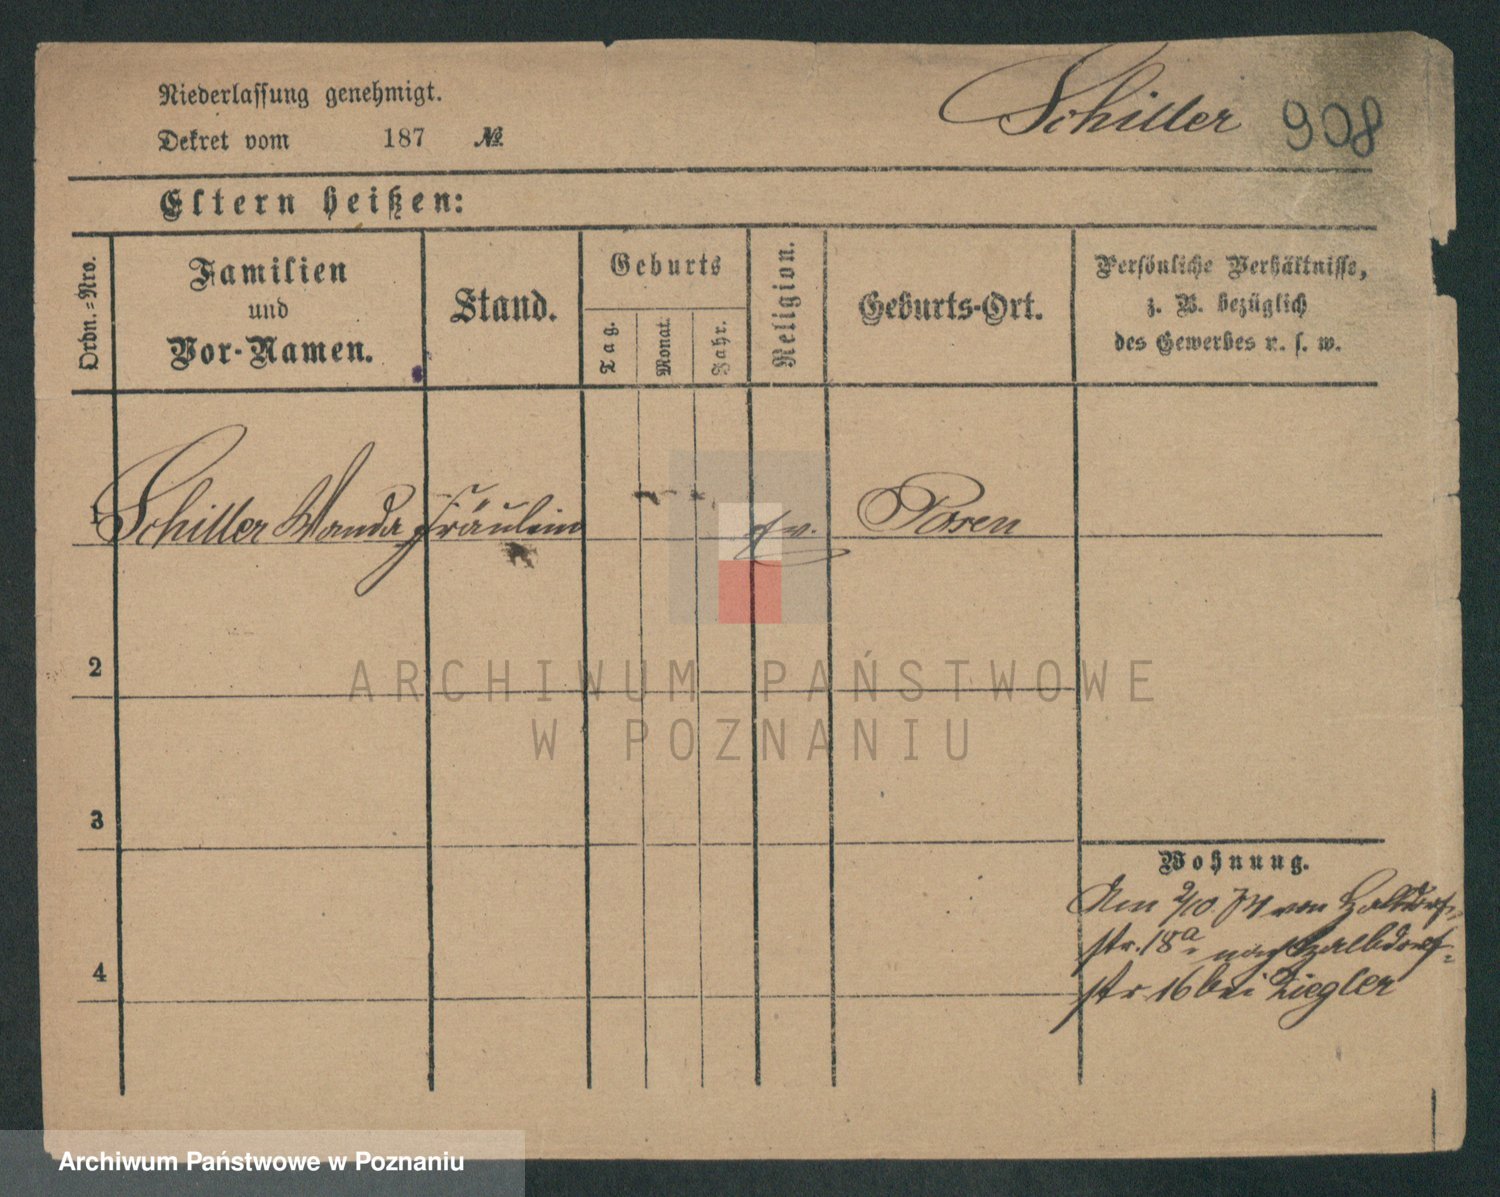 Niederlassung genehmigt.
Schiller 908
Dekret vom 187 №
Eltern heißen:
Ordn.=Nro.
Familien
und
Vor-Namen.
Stand.
Geburts
Tag.
Monat.
Jahr.
Religion.
Geburts-Ort.
Persönliche Verhältnisse,
z. B. bezüglich
des Gewerbes u. s. w.
1 Schiller Wanda Fräulein ev. Posen
2
3
Wohnung.
Am 2/10. 74 von Halbdorf-
str. 18a nach Halbdorf-
4
str 16 bei Ziegler
ARCHIWUM PAŃSTWOWE
W POZNANIU
Archiwum Państwowe w Poznaniu